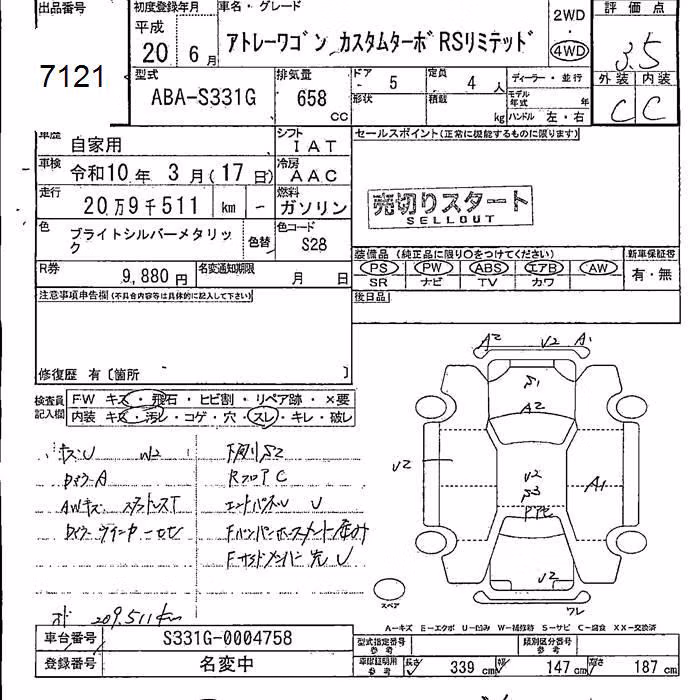 出品番号
7121
初度登録年月
平成
20 6月
車名・グレード
アトレーワゴン カスタムターボRSリミテッド
2WD
4WD
評価点
3.5
型式
ABA-S331G
排気量
658
CC
ドア
5
形状
定員
4人
積載
kg
ディーラー・並行
モデル
年式
年
ハンドル 左・右
外装 内装
C C
車歴
自家用
シフト
IAT
車検
令和10年 3月(17日)
冷房
AAC
走行
20万9千511 km
燃料
ガソリン
色
ブライトシルバーメタリック
色替
色コード
S28
R券
9,880円
名変通知期限
月 日
セールスポイント(正常に機能するものに限ります)
売切りスタート
SELLOUT
装備品(純正品に限り○をつけてください)
新車保証書
PS PW ABS エアB AW
有・無
SR ナビ TV カワ
後日品
注意事項申告欄(不具合内容等は具体的に記入して下さい)
修復歴 有〔箇所 〕
検査員
記入欄
FW キズ・飛石・ヒビ割・リペア跡・×要
内装 キズ・汚レ・コゲ・穴・スレ・キレ・破レ
キズU W2
下廻りS2
RフロアC
AWキズ
エンドパネルU U
オド 209,511km
A2 V2 A1
S1
A2
V2
V2
S3
A1
V2
スペア
ワレ
A-キズ E-エクボ U-凹み W-補修跡 S-サビ C-腐食 XX-交換済
車台番号
S331G-0004758
登録番号
名変中
型式指定番号
参考
類別区分番号
参考
車庫証明用
参考
長さ
339 cm
幅
147 cm
高さ
187 cm